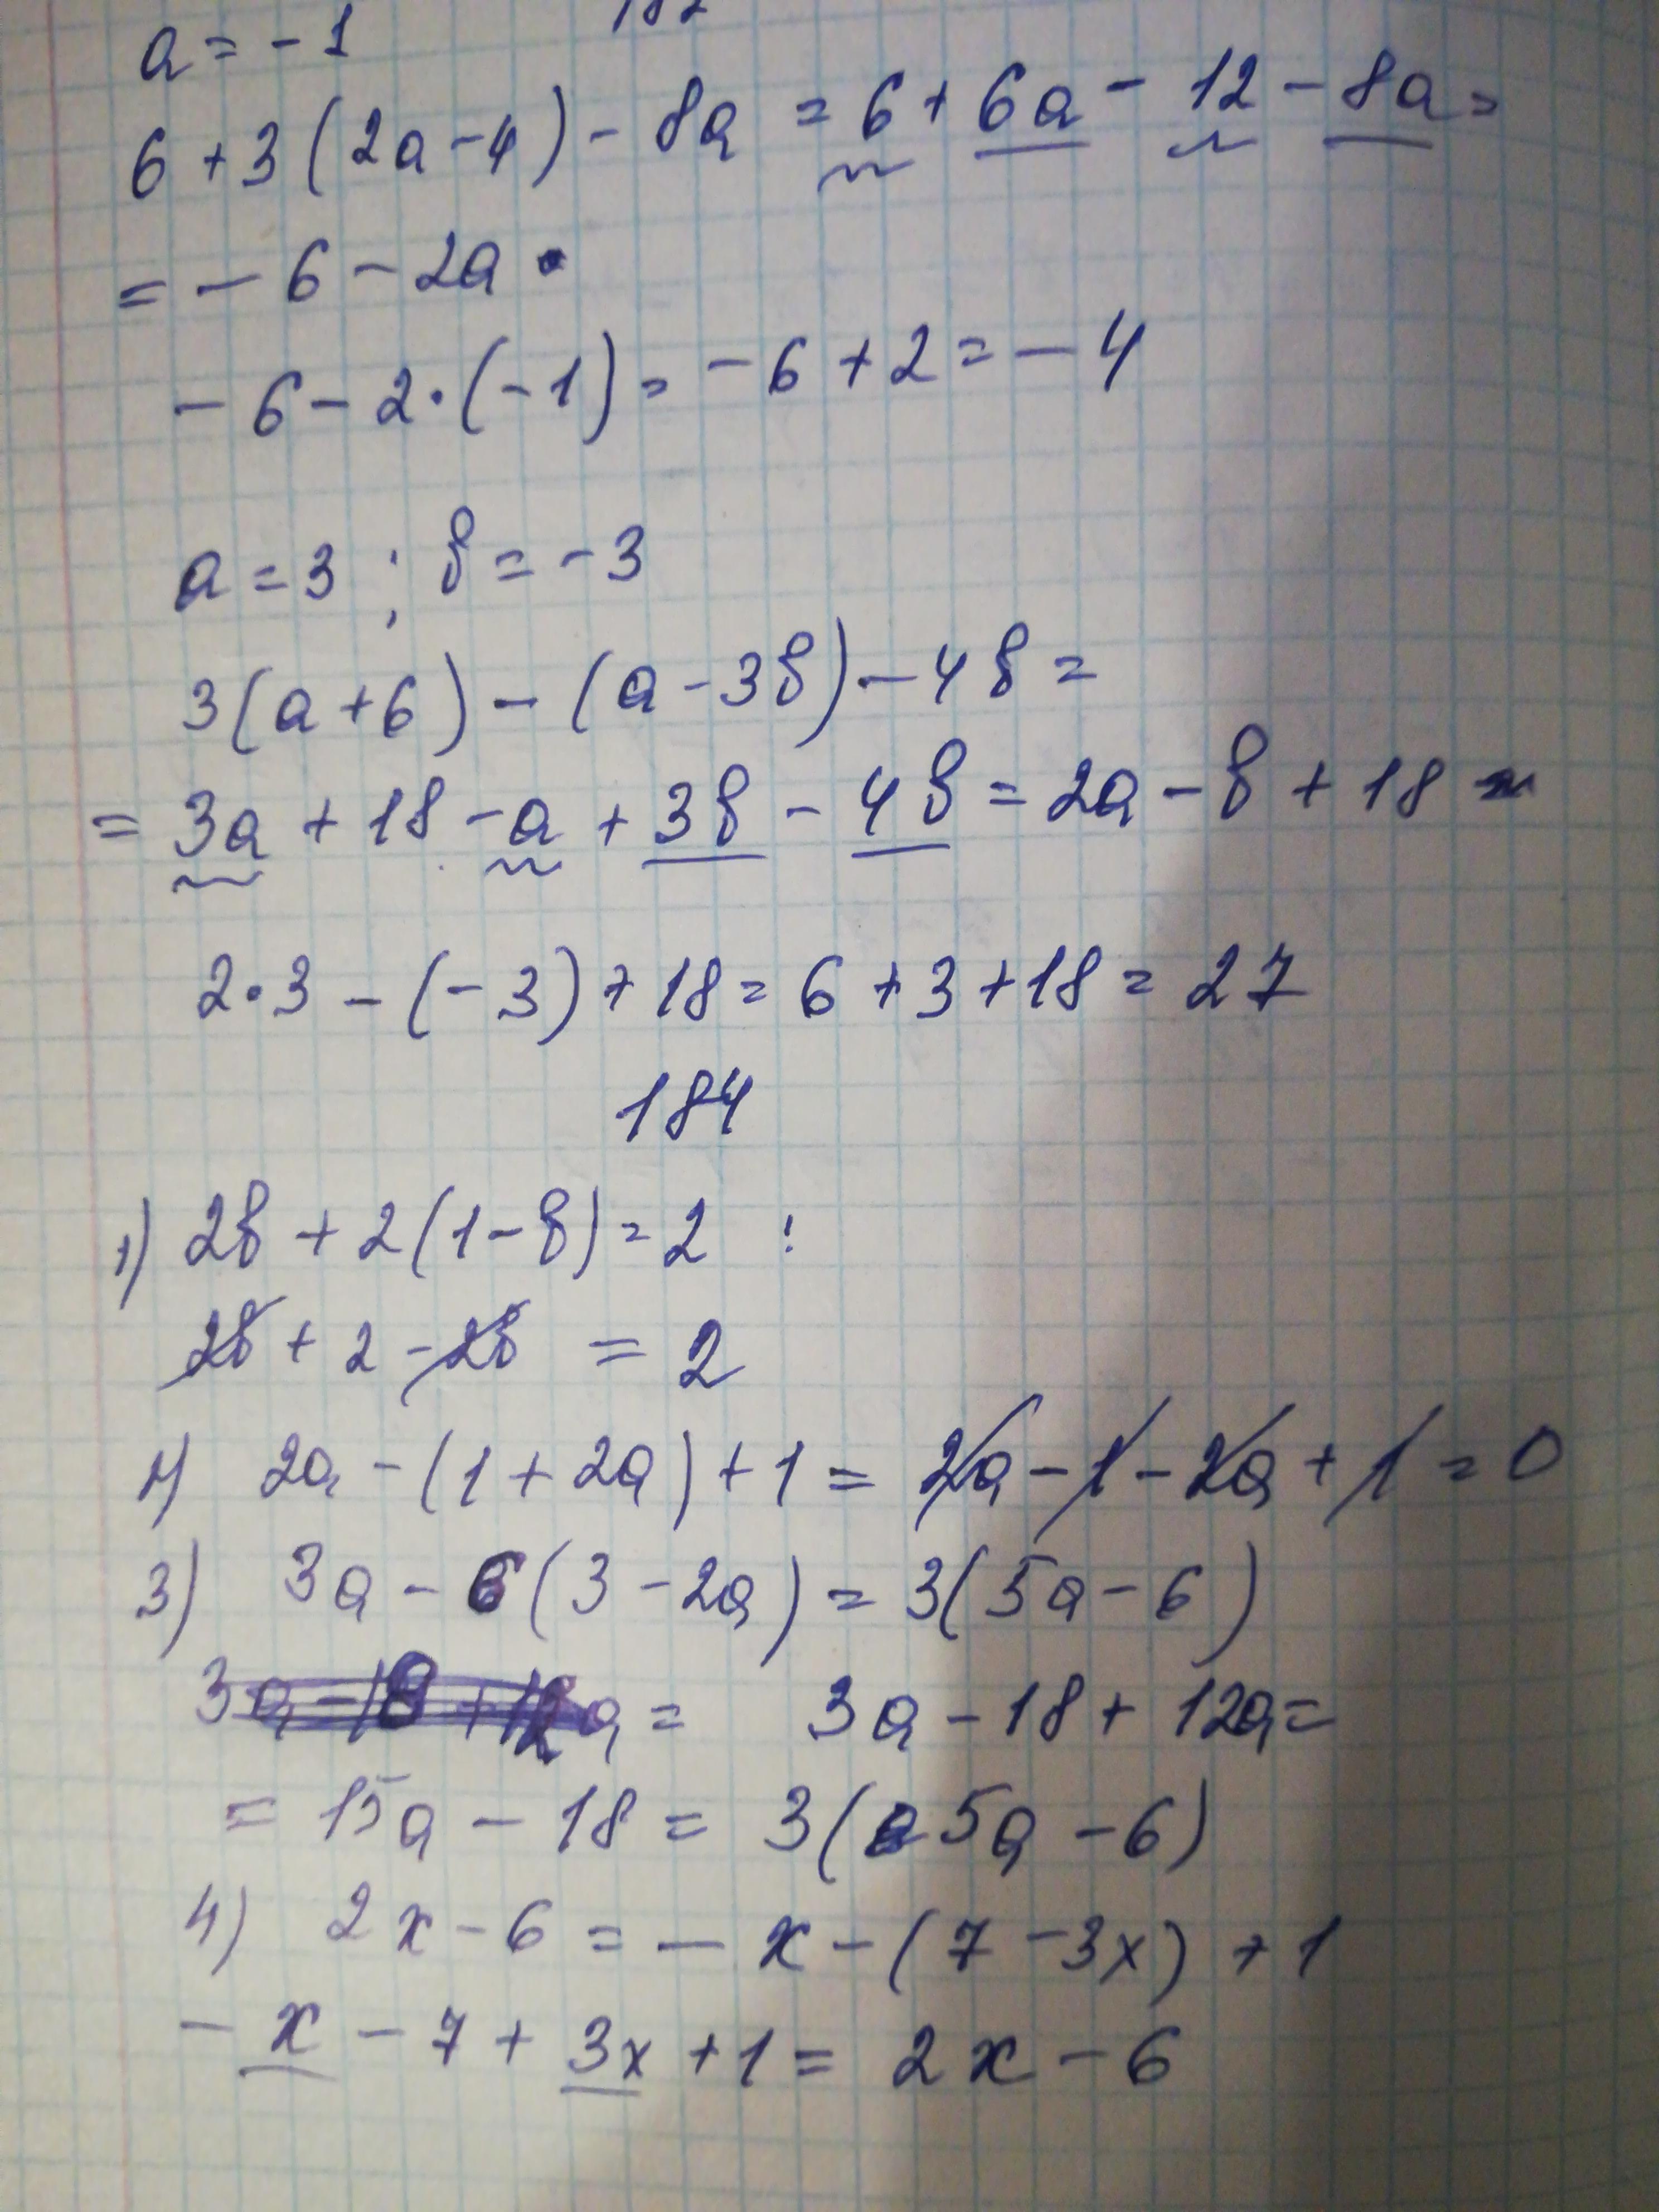 182
a = - 1
6 + 3 (2a - 4) - 8a = 6 + 6a - 12 - 8a =
= - 6 - 2a
- 6 - 2 · (- 1) = - 6 + 2 = - 4
a = 3 ; в = - 3
3 (a + 6) - (a - 3в) - 4в =
= 3a + 18 - a + 3в - 4в = 2a - в + 18
2 · 3 - (- 3) + 18 = 6 + 3 + 18 = 27
184
1) 2в + 2 (1 - в) = 2 !
2в + 2 - 2в = 2
2) 2a - (1 + 2a) + 1 = 2a - 1 - 2a + 1 = 0
3) 3a - 6 (3 - 2a) = 3 (5a - 6)
3a - 18 + 12a = 3a - 18 + 12a =
= 15a - 18 = 3 (5a - 6)
4) 2x - 6 = - x - (7 - 3x) + 1
- x - 7 + 3x + 1 = 2x - 6